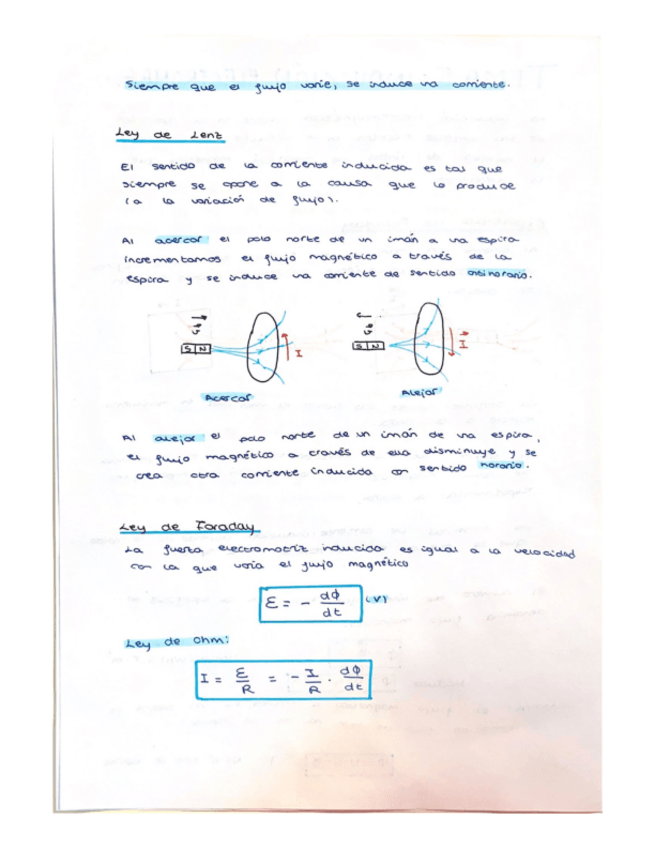 Siempre que el flujo varie, se induce una corriente.
Ley de Lenz
El sentido de la corriente inducida es tal que
siempre se opone a la causa que lo produce
(a la variación de flujo).
Al acercar el polo norte de un imán a una espira
incrementamos el flujo magnético a través de la
espira y se induce una corriente de sentido antihorario.
v
S N
I
Acercar
v
S N
I
Alejar
Al alejar el polo norte de un imán de una espira,
el flujo magnético a través de ella disminuye y se
crea otra corriente inducida con sentido horario.
Ley de Faraday
La fuerza electromotriz inducida es igual a la velocidad
con la que varia el flujo magnético
ε = - dΦ/dt (V)
Ley de Ohm:
I = ε/R = - I/R · dΦ/dt